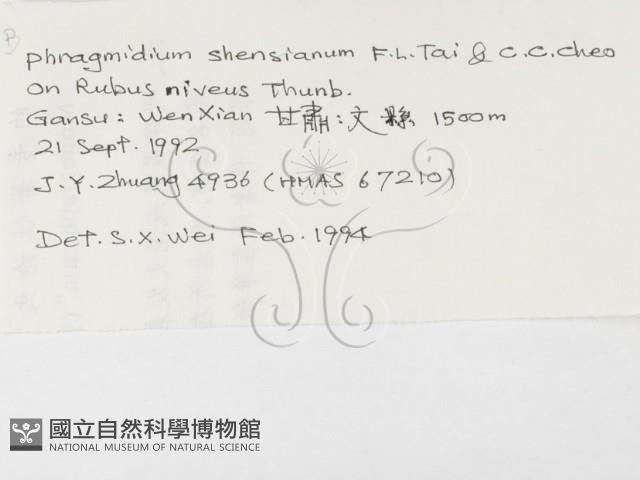 P
Phragmidium shensianum F.L.Tai & C.C.Cheo
On Rubus niveus Thunb.
Gansu: Wen Xian 甘肅:文縣 1500m
21 Sept. 1992
J.Y.Zhuang 4936 (HMAS 67210)
Det. S.X.Wei Feb. 1994
國立自然科學博物館
NATIONAL MUSEUM OF NATURAL SCIENCE